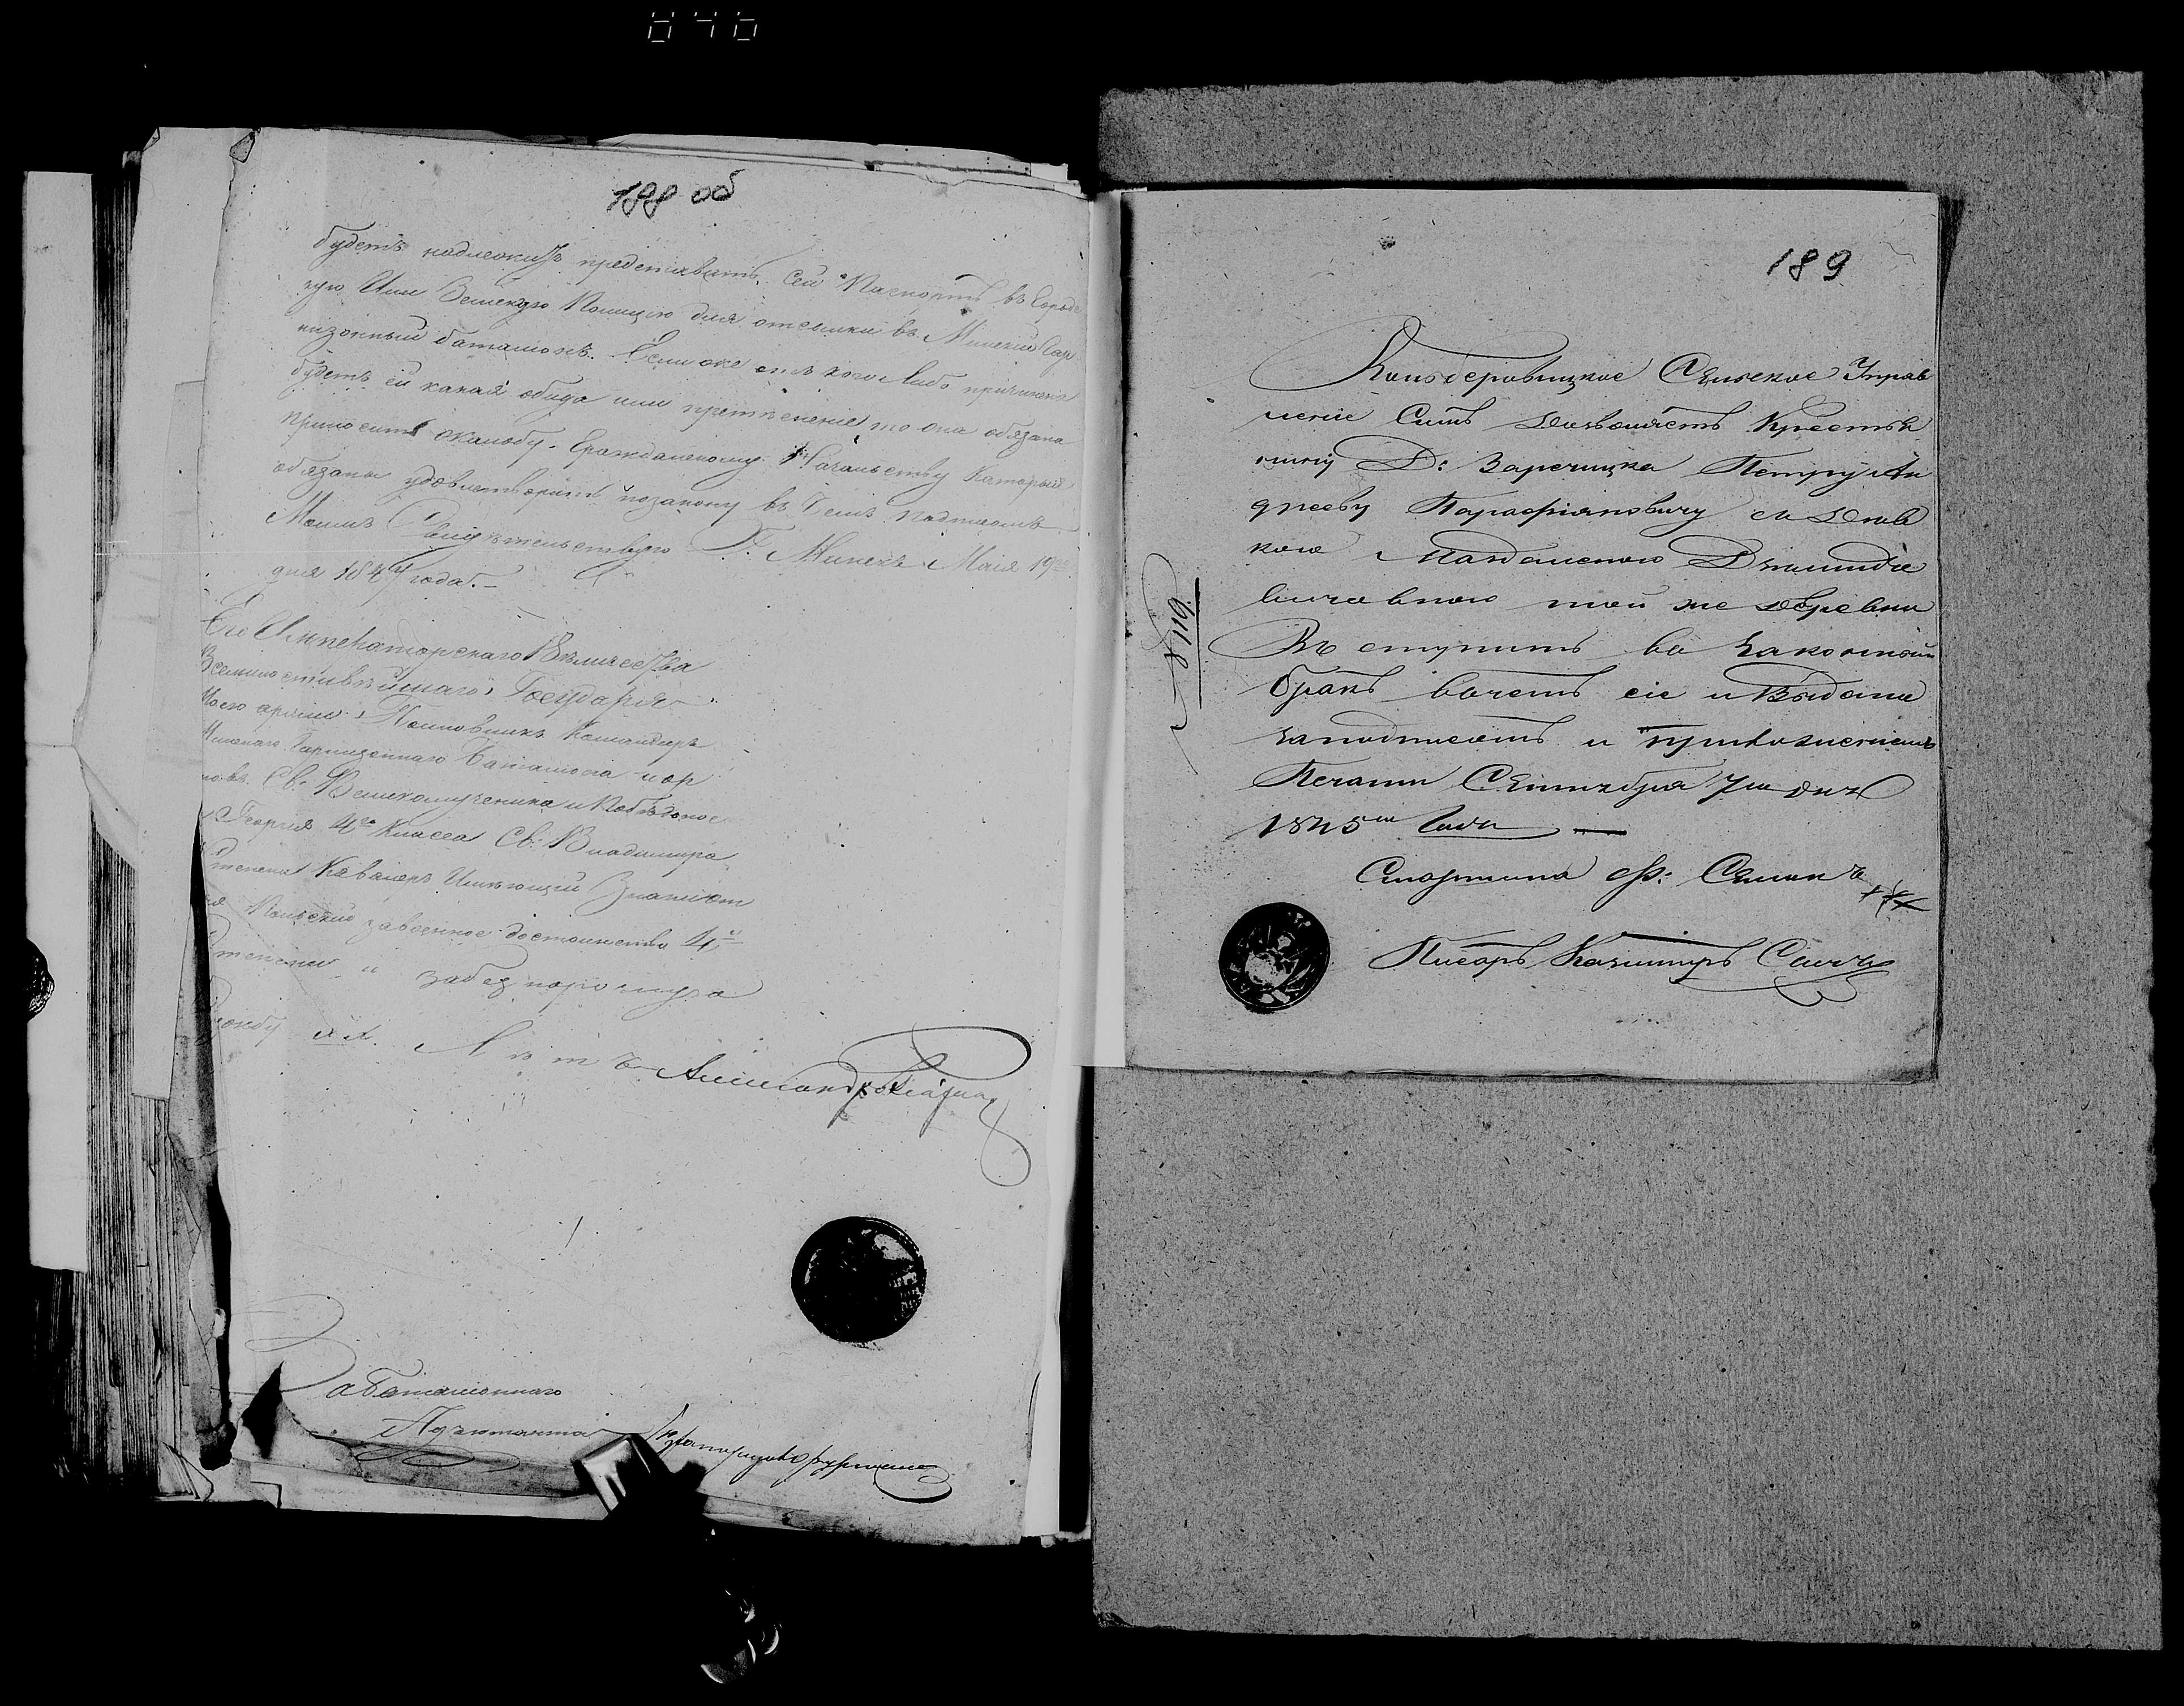 188 об
будетъ надлежитъ представить сей Паспортъ въ Городс
кую Или Земскую Полицію для отсылки въ Минскій Гар
низонный баталіонъ. Если же отъ кого либо причинена
будетъ ей какая обида или притѣсненіе то она обязана
приносить жалобу Гражданскому Начальству Которые
обязаны удовлетворить позакону въ Чемъ подписомъ
Моимъ Свидѣтельствую Г. Минскъ Маія 19го
дня 1844 года.
Его Императорскаго Величества
Всемилостивѣйшаго Государя
Моего арміи Полковникъ Командиръ
Минскаго Гарнизоннаго Баталіона и ор
новъ Св: Великомученика и Побѣдонос
Георгія 4го Класса Св: Владимира
Степени Кавалеръ Имѣющій Знаки от
Польскій за военное достоинство 4й
Степени и забезпорочную
службу лѣтъ
За Баталіоннаго
Адъютанта Прапорщикъ
189
№ 8119
Сельское Управ
леніе Симъ дозволяетъ Крестья
нину Д: Заречицка Петру Ан
дрееву Парафіяновичу съ девв
кою Магдаленою
вичовною той же деревни
Вступить во законный
бракъ вочемъ сіе и Выдано
заподписомъ и приложеніемъ
Печати Сентября 7го дня
1845го Года
Старшина Ф: Семакъ +++
Писарь Казимиръ